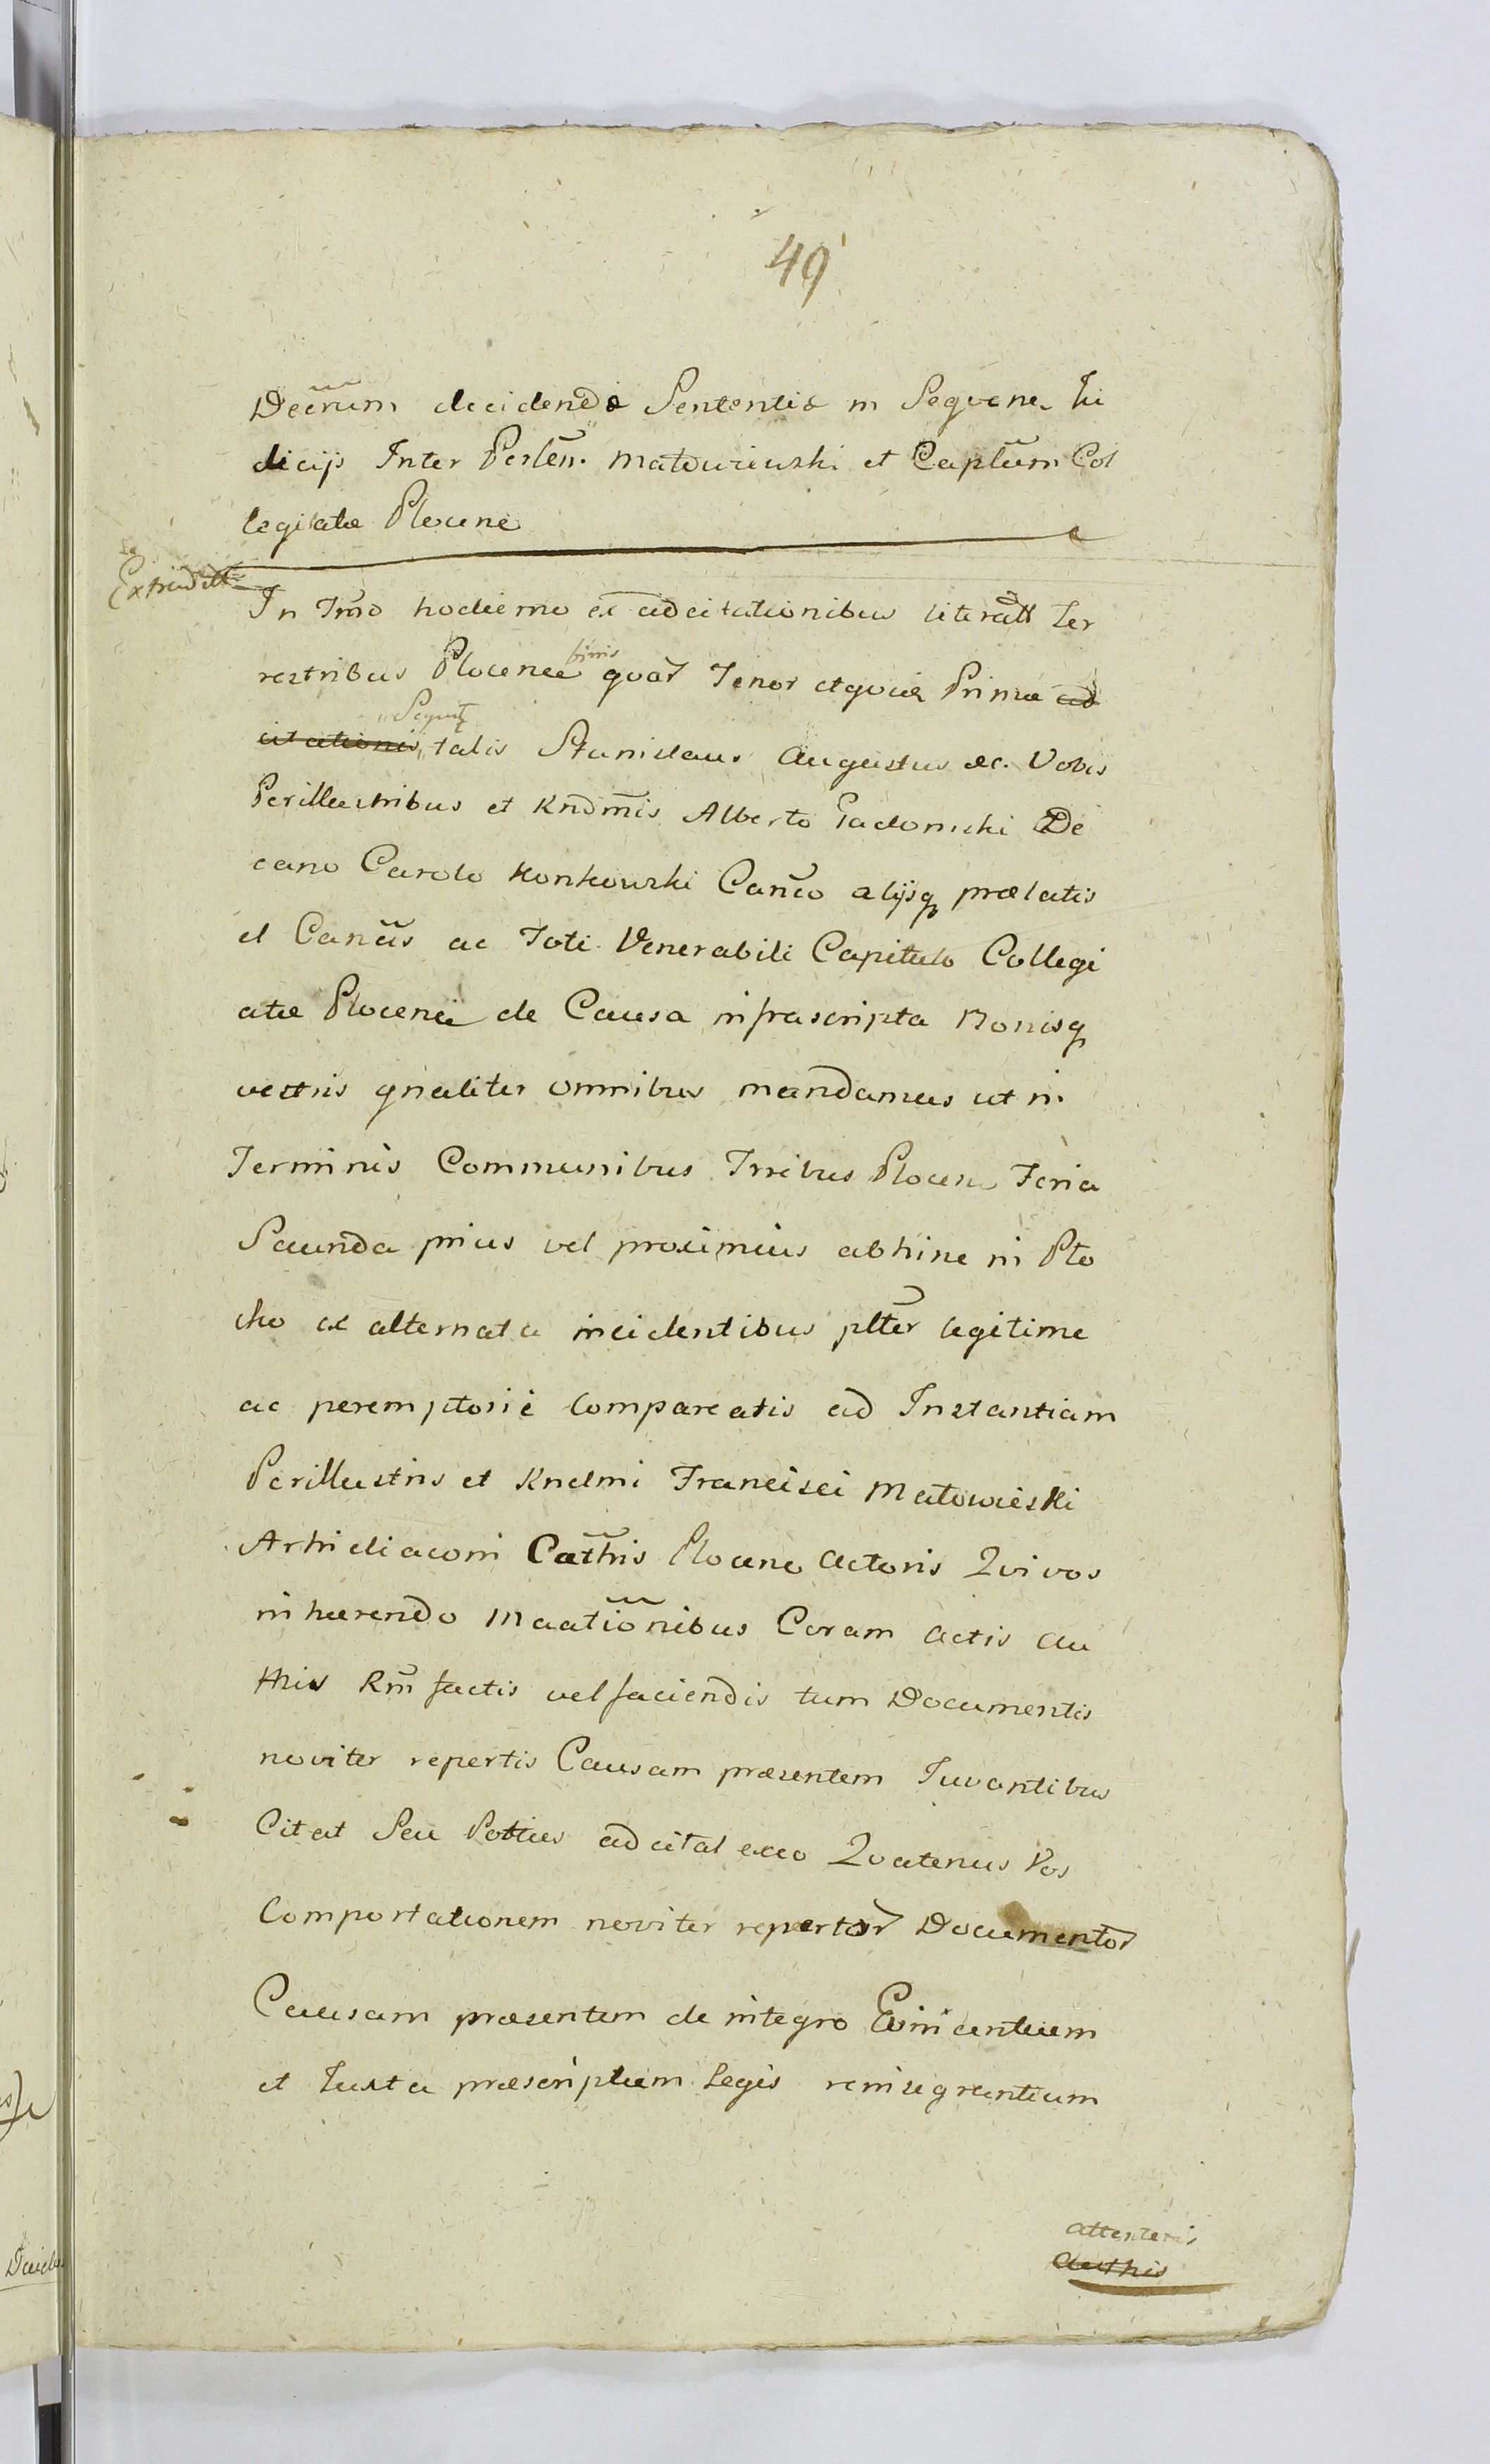 49
Decrum decidendæ Sententiæ in Sequen. Iu
dicijs Inter Perlen. Matowieuski et Caplum Col
legiatæ Plocen
Extradit
In Tmo hodierno ex adcitationibus literall Ter
restribus Plocen binis quar Tenor etquidē Primæ ad
citationis Sequit talis Stanislaus Augustus etc. Vobis
Perillustribus et Rndmis Alberto Gadomski De
cano Carolo Konkowski Canco alijsq prælatis
et Cancis ac Toti Venerabili Capitulo Collegi
atæ Plocen de Causa infrascripta Bonisq
vestris gnaliter omnibus mandamus ut in
Terminis Communibus Trribus Plocen Feria
Secunda prius vel proximius abhinc in Plo
cko ex alternata incidentibus plter legitime
ac peremptorie Compareatis ad Instantiam
Perillustris et Rndmi Francisci Matowieski
Archidiaconi Cathris Plocen Actoris Qui vos
inhærendo Maationibus Coram Actis Au
this Rm factis vel faciendis tum Documentis
noviter repertis Causam præsentem Iuvantibus
Citat Seu Potius adcitat exeo Quatenus Vos
Comportationem noviter repertor Documentor
Causam præsentem de integro Evincentium
et Iuxta præscriptum Legis reintegrantium
attenteris
Authis